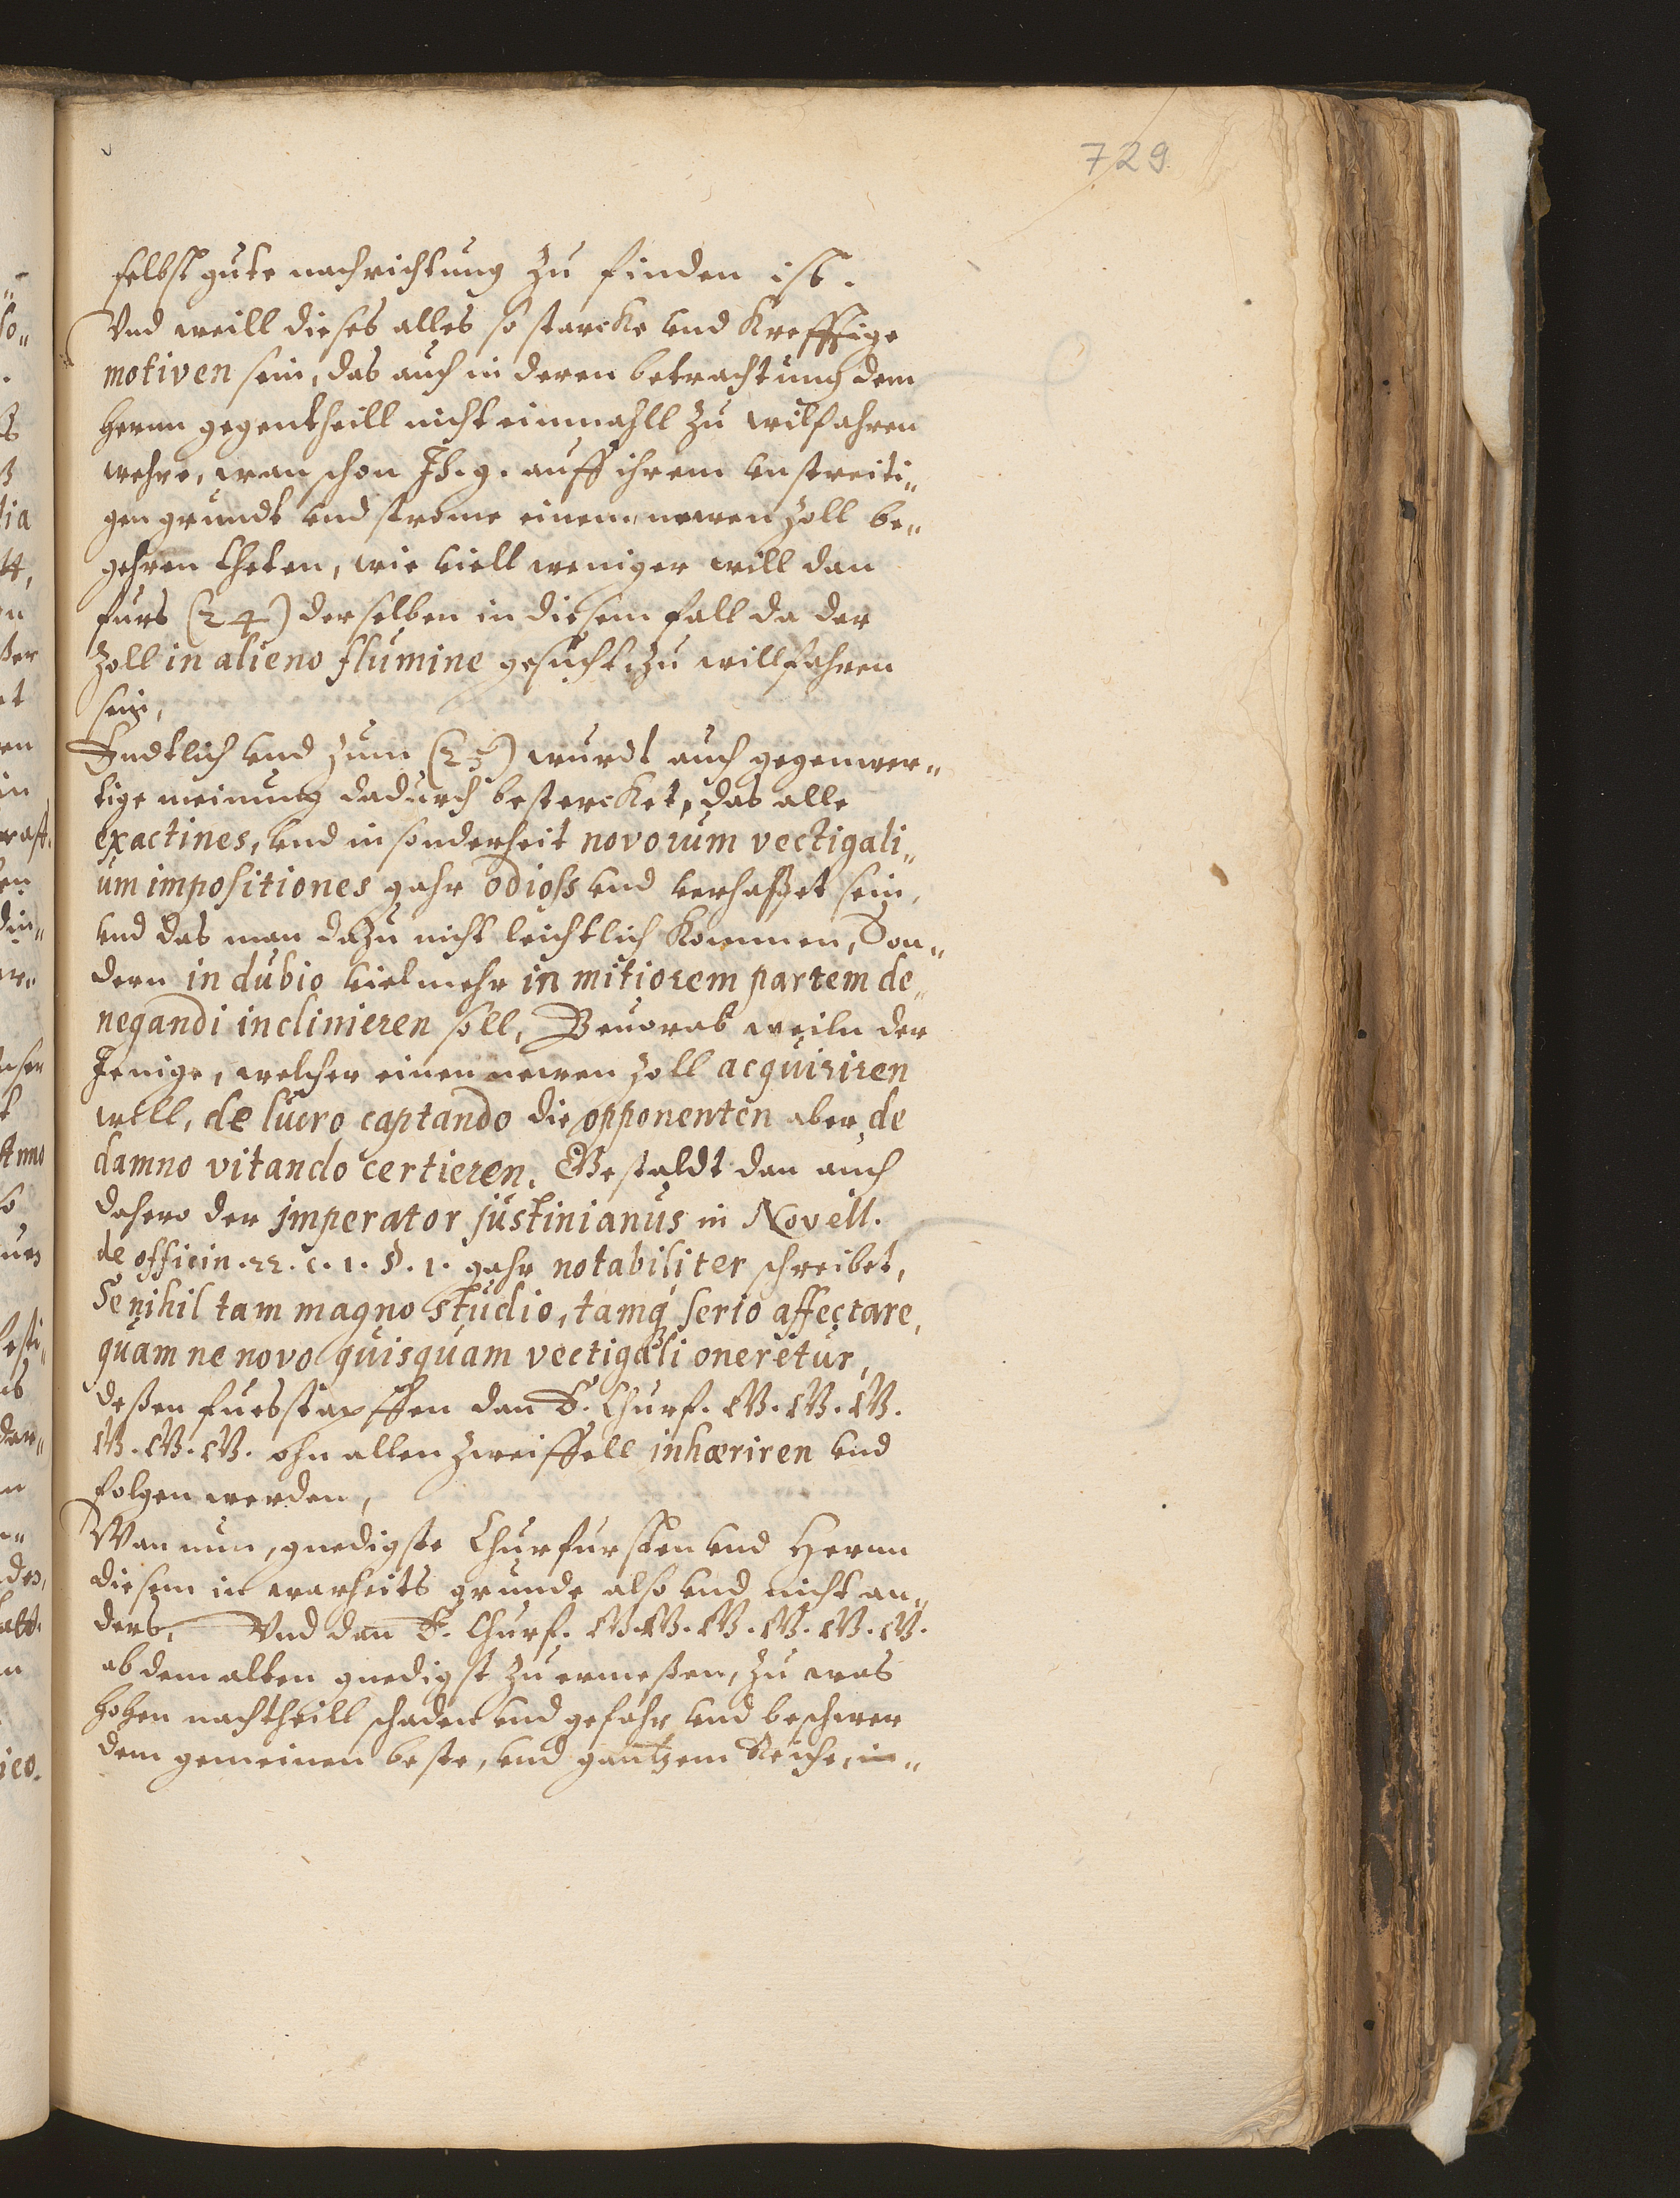 729
selbst gute nachrichtung zu finden ist.
Vnd weill dieses alles so starcke vnd Krefftige
motiven sein, das auch in deren betrachtung dem
herrn gegentheill nicht einmahll zu wilfahren
wehre, wan schon Ih. g. auff ihrem vnstreiti„
gen grundt vnd strome einem newen Zoll be„
gehren theten, wie viell weniger will dan
furs (24) derselben in diesem fall da der
Zoll in alieno flumine gesucht, zu willfahren
sein,
Endtlich vnd zum (25) wurdt auch gegenwer„
tige meinung dadurch bestercket, das alle
exactines, vnd in sonderheit novorum vectigali„
um impositiones gahr odioss vnd verhasset sein,
vnd das man dazu nicht leichtlich Kommen, Son„
dern in dubio vielmehr in mitiorem partem de„
negandi inclinieren soll, Beuorab weiln der
Jenige, welcher einen newen Zoll acquiriren
will, de lucro captando die opponenten aber, de
damno vitando certieren, Gestaldt dan auch
dahero der jmperator justinianus in Novell.
de officin. 22. c. 1. §. 1. gahr notabiliter schreibet,
Se nihil tam magno studio, tamq; serio affectare,
quam ne novo quisquam vectigali oneretur,
deßen fuesstapffen dan E. Churf. G. G. G.
G. G. G. ohn allen zweiffell inhæriren vnd
folgen werden,
Wan nun, gnedigste Churfursten vnd Herrn
diesem in warheits grunde also vnd nicht an„
ders, Vnd dan E. Churf. G. G. G. G. G. G.
ab dem alten gnedigst zu ermeßen, zu was
hohen nachtheill schaden vnd gefahr vnd beschwer
dem gemeinen beste, vnd gantzem Reiche, in„